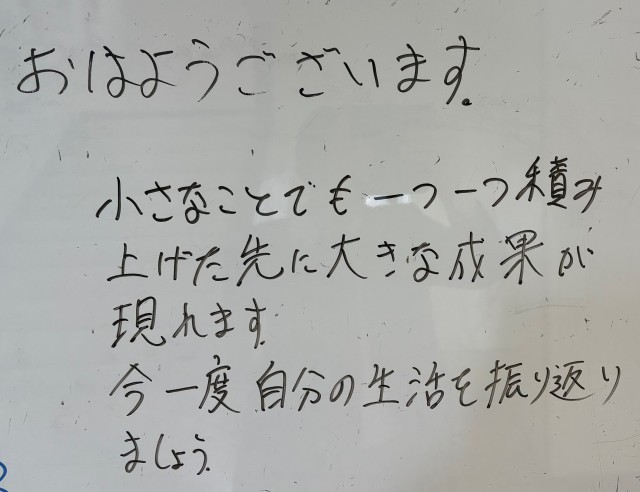 おはようございます.
小さなことでも一つ一つ積み
上げた先に大きな成果が
現れます.
今一度自分の生活を振り返り
ましょう.